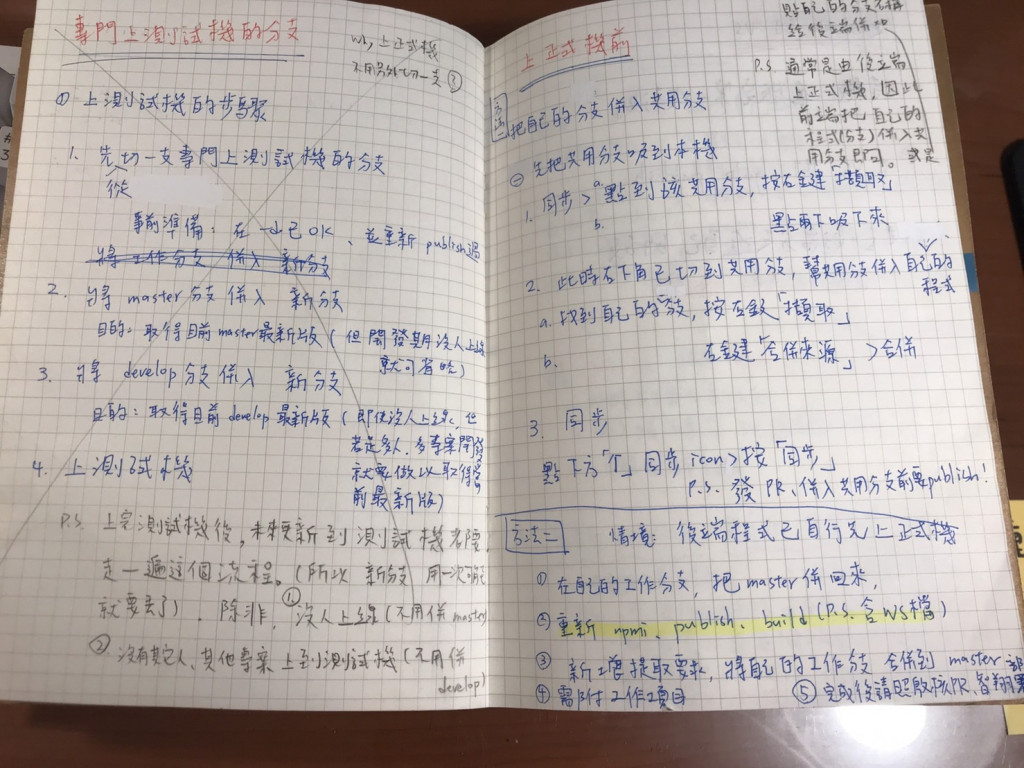 專門上測試機的分支
上正式機
不用另外切一支 ③
① 上測試機的步驟
1. 先切一支專門上測試機的分支
從
事前準備：在 一dㄧ已OK、並重新 publish過
將工作分支 併入 新分支
2. 將 master 分支 併入 新分支
目的：取得目前 master 最新版（但開發期沒人上線
就可省略）
3. 將 develop 分支 併入 新分支
目的：取得目前 develop 最新版（即使沒人上線，但
若是多人、多專案開發
就要做以取得當
前最新版）
4. 上測試機
P.S. 上完測試機後，未來更新到測試機若隔
走一遍這個流程。（所以 新分支 用一次
就要丟了）. 除非，① 沒人上線（不用併 master）
② 沒有其它人、其他專案 上到測試機（不用併
develop）
上正式機前
貼自己的分支名稱
給後端併
P.S. 通常是由後端
上正式機，因此
前端把 自己的
程式(分支) 併入共
用分支即可。或是
方法一 把自己的分支併入共用分支
㊀ 先把共用分支吸到本機
1. 同步 > a. 點到該共用分支，按右鍵「擷取」
b. 點兩下吸下來
2. 此時右下角已切到共用分支，幫共用分支併入自己的
程式
a. 找到自己的分支，按右鍵「擷取」
b. 右鍵「合併來源」 > 合併
3. 同步
點下方「↑」同步 icon > 按「同步」
P.S. 發 PR、併入共用分支前要 publish！
方法二 情境：後端程式已自行先上正式機
① 在自己的工作分支，把 master 併回來，
② 重新 npmi、publish、build (P.S. 含 ws 檔)
③ 新增提取要求，將自己的工作分支 合併到 master
④ 需附工作項目 ⑤ 完成後請照啟核PR、智翔